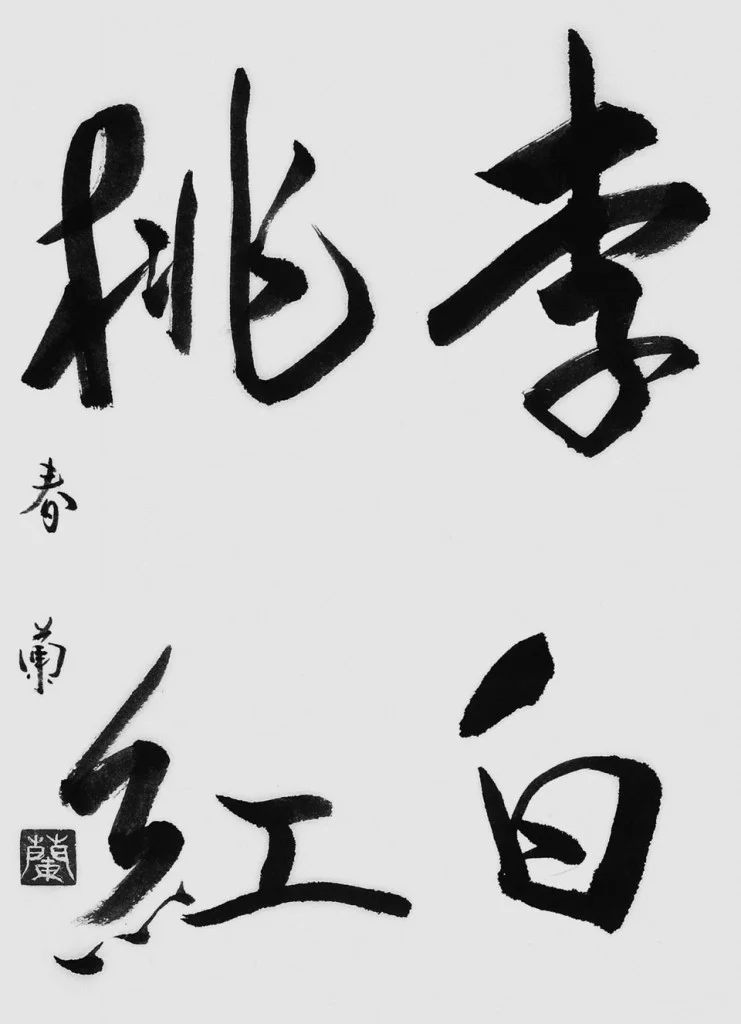 李白
桃紅
春蘭
蘭